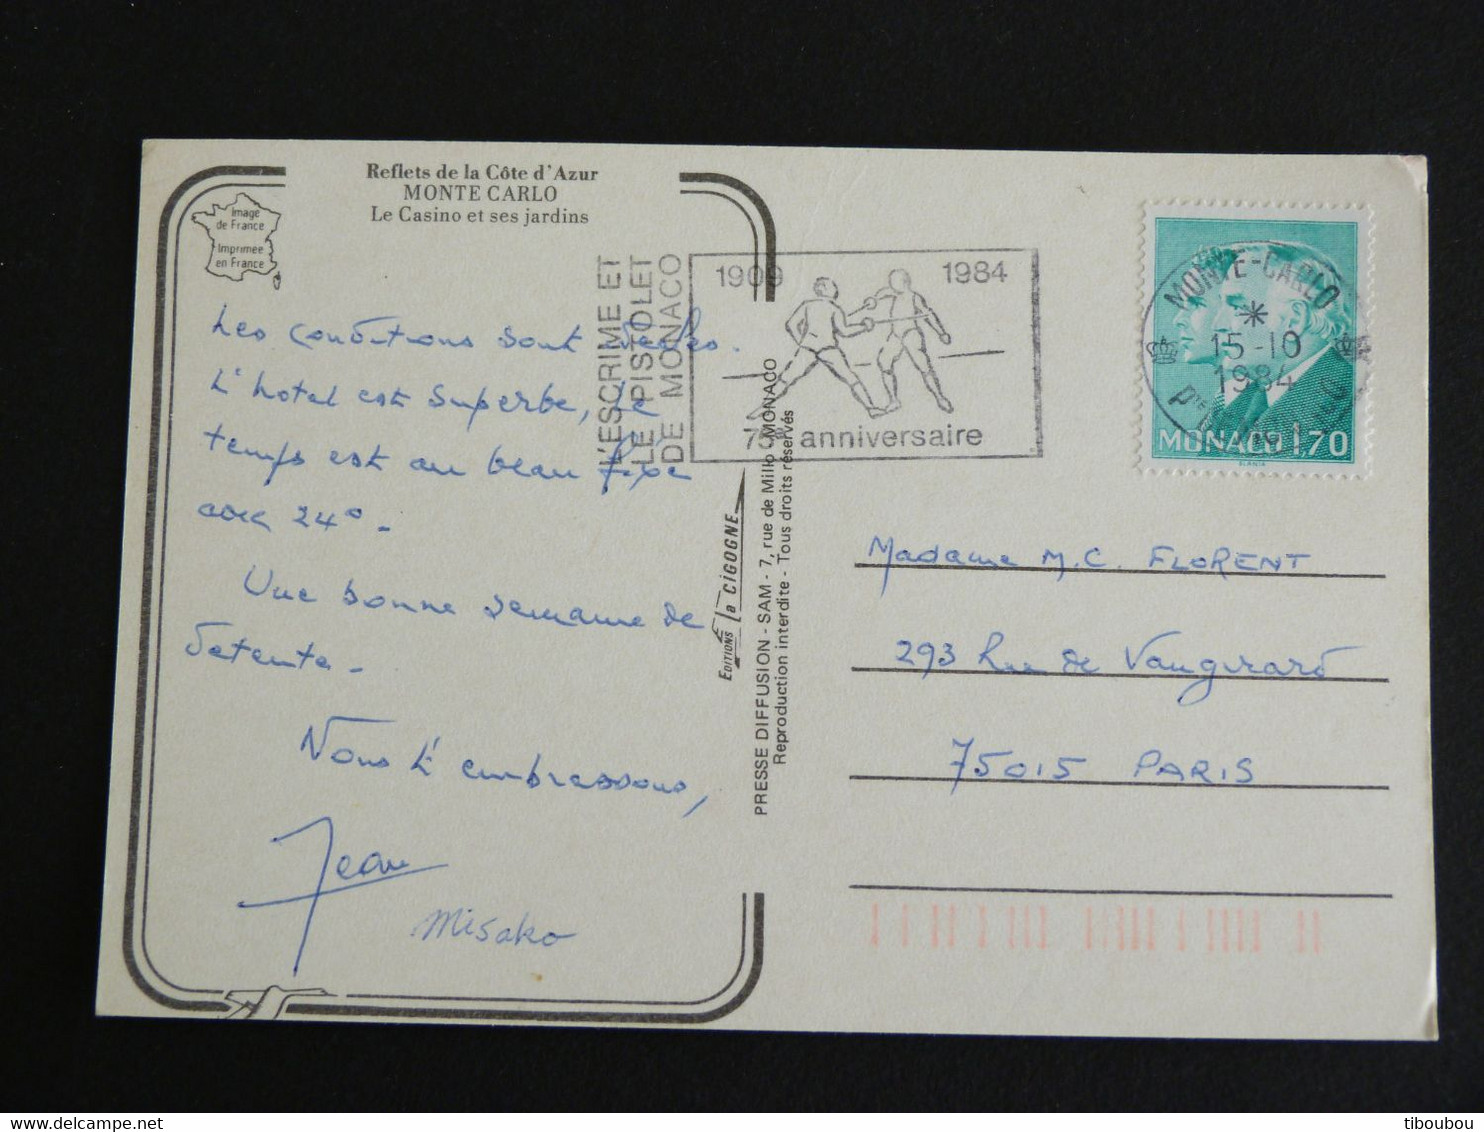 Reflets de la Côte d'Azur
MONTE CARLO
Le Casino et ses jardins
Image
de France
Imprimée
en France
Les conditions sont
L'hotel est superbe, le
temps est au beau fixe
avec 24° -
Une bonne semaine de
detente -
Nous t'embrassons,
Jean
Misako
L'ESCRIME ET
LE PISTOLET
DE MONACO
1909 1984
75e anniversaire
EDITIONS la CIGOGNE
PRESSE DIFFUSION - SAM - 7, rue de Millo MONACO
Reproduction interdite - Tous droits réservés
MONTE-CARLO
15-10
1984
MONACO 1,70
SLANIA
Madame M.C. FLORENT
293 Rue de Vaugirard
75015 PARIS
tiboubou